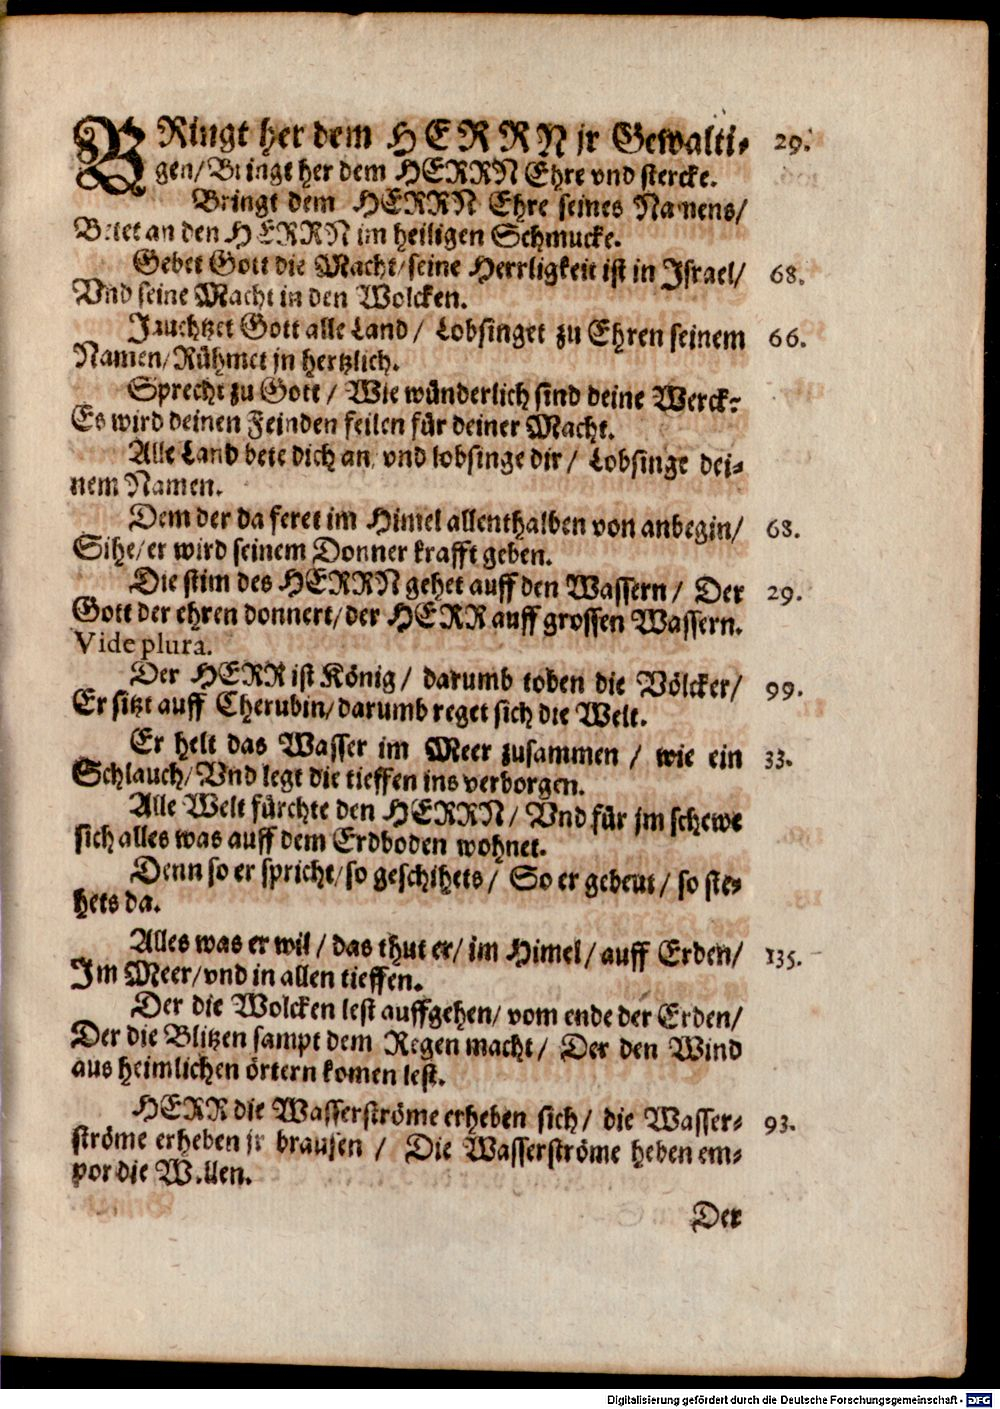 BRingt her dem HERRN jr Gewalti- 29.
gen/Bringt her dem HERRN Ehre vnd stercke.
Bringt dem HERRN Ehre seines Namens/
Betet an den HERRN im heiligen Schmucke.
Gebet Gott die Macht/seine Herrligkeit ist in Jsrael/ 68.
Vnd seine Macht in den Wolcken.
Jauchtzet Gott alle Land/ Lobsinget zu Ehren seinem 66.
Namen/Rühmet jn hertzlich.
Sprecht zu Gott/ Wie wünderlich sind deine Werck?
Es wird deinen Feinden feilen für deiner Macht.
Alle Land bete dich an, vnd lobsinge dir/ Lobsinge dei-
nem Namen.
Dem der da feret im Himel allenthalben von anbegin/ 68.
Sihe/er wird seinem Donner krafft geben.
Die stim des HERRN gehet auff den Wassern/ Der 29.
Gott der ehren donnert/der HERR auff grossen Wassern.
Vide plura.
Der HERR ist König/ darumb toben die Völcker/ 99.
Er sitzt auff Cherubin/darumb reget sich die Welt.
Er helt das Wasser im Meer zusammen/ wie ein 33.
Schlauch/Vnd legt die tieffen ins verborgen.
Alle Welt fürchte den HERRN/ Vnd für jm schewe
sich alles was auff dem Erdboden wohnet.
Denn so er spricht/so geschihets/ So er gebeut/ so ste-
hets da.
Alles was er wil/ das thut er/ im Himel/ auff Erden/ 135.
Jm Meer/vnd in allen tieffen.
Der die Wolcken lest auffgehen/ vom ende der Erden/
Der die Blitzen sampt dem Regen macht/ Der den Wind
aus heimlichen örtern komen lest.
HERR die Wasserströme erheben sich/ die Wasser- 93.
ströme erheben jr brausen/ Die Wasserströme heben em-
por die Wellen.
Der
Digitalisierung gefördert durch die Deutsche Forschungsgemeinschaft - DFG